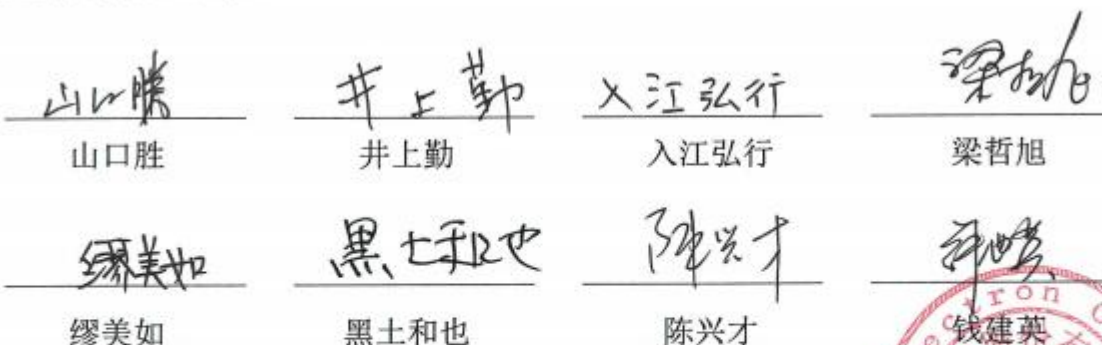 山口胜 井上勤 入江弘行 梁哲旭
山口胜 井上勤 入江弘行 梁哲旭
缪美如 黑土和也 陈兴才
缪美如 黑土和也 陈兴才 钱建英
ectron C